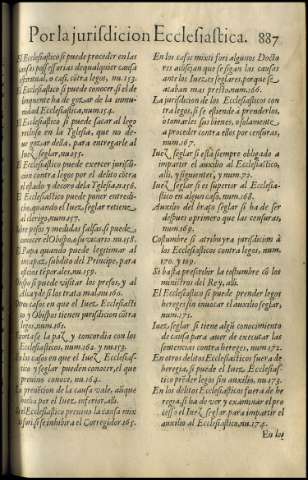 Por la jurisdicion Ecclesiastica. 887
El Ecclesiastico si puede proceder en las
causas possessorias de qualquier causa
spiritual, o casi, cōtra legos, nu.153.
Ecclesiastico si puede conocer, si el de
linquente ha de gozar de la immu
nidad Ecclesiastica, num.154.
Ecclesiastico si puede sacar al lego
recluso en la Yglesia, que no de-
ue gozar della, para entregarle al
Iuez seglar, nu.155.
Ecclesiastico puede exercer jurisdi-
cion contra legos por el delito cōtra
el estado y decoro dela Yglesia, n.156.
Ecclesiastico puede poner entredi-
cho, quando el Iuez seglar retiene
al clerigo, num.157.
Sobre pesos y medidas falsas si puede
conocer el Obispo, o su vicario. nu.158.
El Papa quando puede legitimar al
incapaz, subdito del Principe, para
efectos temporales, nu.159.
Obispo si puede visitar los presos, y al
caydes si los trata mal, nu.160.
Por casos en que el Iuez Ecclesiasti
co y Obispos tienen jurisdicion cōtra
legos, num.161.
contrasse la paz y concordia con los
Ecclesiasticos, num.162. y nu.153.
En los casos en que el Iuez Ecclesias-
tico y seglar pueden conocer, el que
preuino conoce, nu.164.
La preuencion de la causa vale, aunque
sea por el Iuez inferior, alli.
Si el Ecclesiastico preuino la causa mix
ti fori, si se inhibira el Corregidor. 165.
En los casos mixti fori algunos Docto
res aconsejan que se sigan las causas
ante los Iuezes seglares, porque se
ataban mas presto, num.166.
La jurisdicion de los Ecclesiasticos con
tra legos, si se estiende a prenderlos,
o tomarles sus bienes, o solamente,
a proceder contra ellos por censuras,
num.167.
Iuez seglar si està siempre obligado a
impartir el auxilio al Ecclesiastico,
alli, y siguientes, y num.172.
Iuez seglar si es superior al Ecclesia-
stico en algun caso, num.168.
Auxilio del braço seglar si ha de ser
despues o primero que las censuras,
num.169.
Costumbre si atribuyra jurisdicion à
los Ecclesiasticos contra legos, num.
170. y 179.
Se basta prescreuir la costumbre cō los
ministros del Rey, alli.
El Ecclesiastico si puede prender legos
hereges sin inuocar el auxilio seglar,
num.171.
Iuez seglar si tiene algū conocimiento
de causa para auer de executar las
sentencias contra hereges, num 172.
En otros delitos Ecclesiasticos fuera de
heregia, si puede el Iuez Ecclesiasti-
co prēder legos sin auxilio, nu.173.
En los delitos Ecclesiasticos fuera de he
regia, si ha de ver y examinar el pro
cesso el Iuez seglar, para impartir el
auxilio al Ecclesiastico, nu.174.
En los